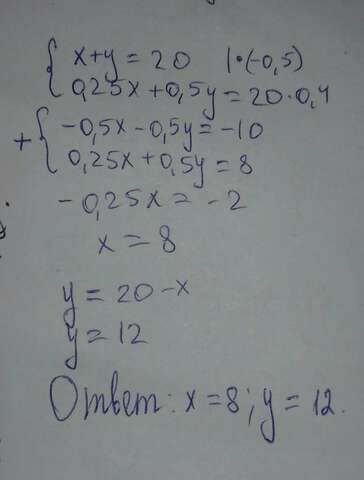 x+y=20 |·(-0,5)
0,25x+0,5y=20·0,4
+ -0,5x-0,5y=-10
0,25x+0,5y=8
-0,25x=-2
x=8
y=20-x
y=12
Ответ: x=8; y=12.